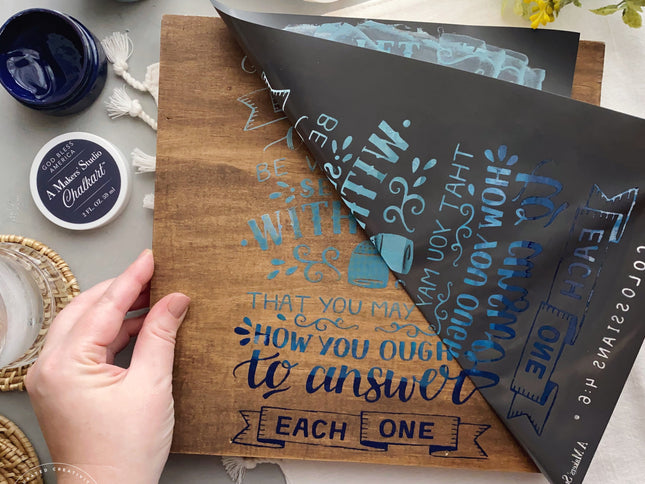 GOD BLESS
AMERICA
A Makers' Studio
Chalkart
2 FL. OZ. 59 ml
LET
BE
BE
WITH
WITH.
THAT YOU MAY
THAT YOU MAY
HOW YOU OUGH
HOW YOU OUGH
to answer
to answer
EACH ONE
EACH ONE
COLOSSIANS 4:6